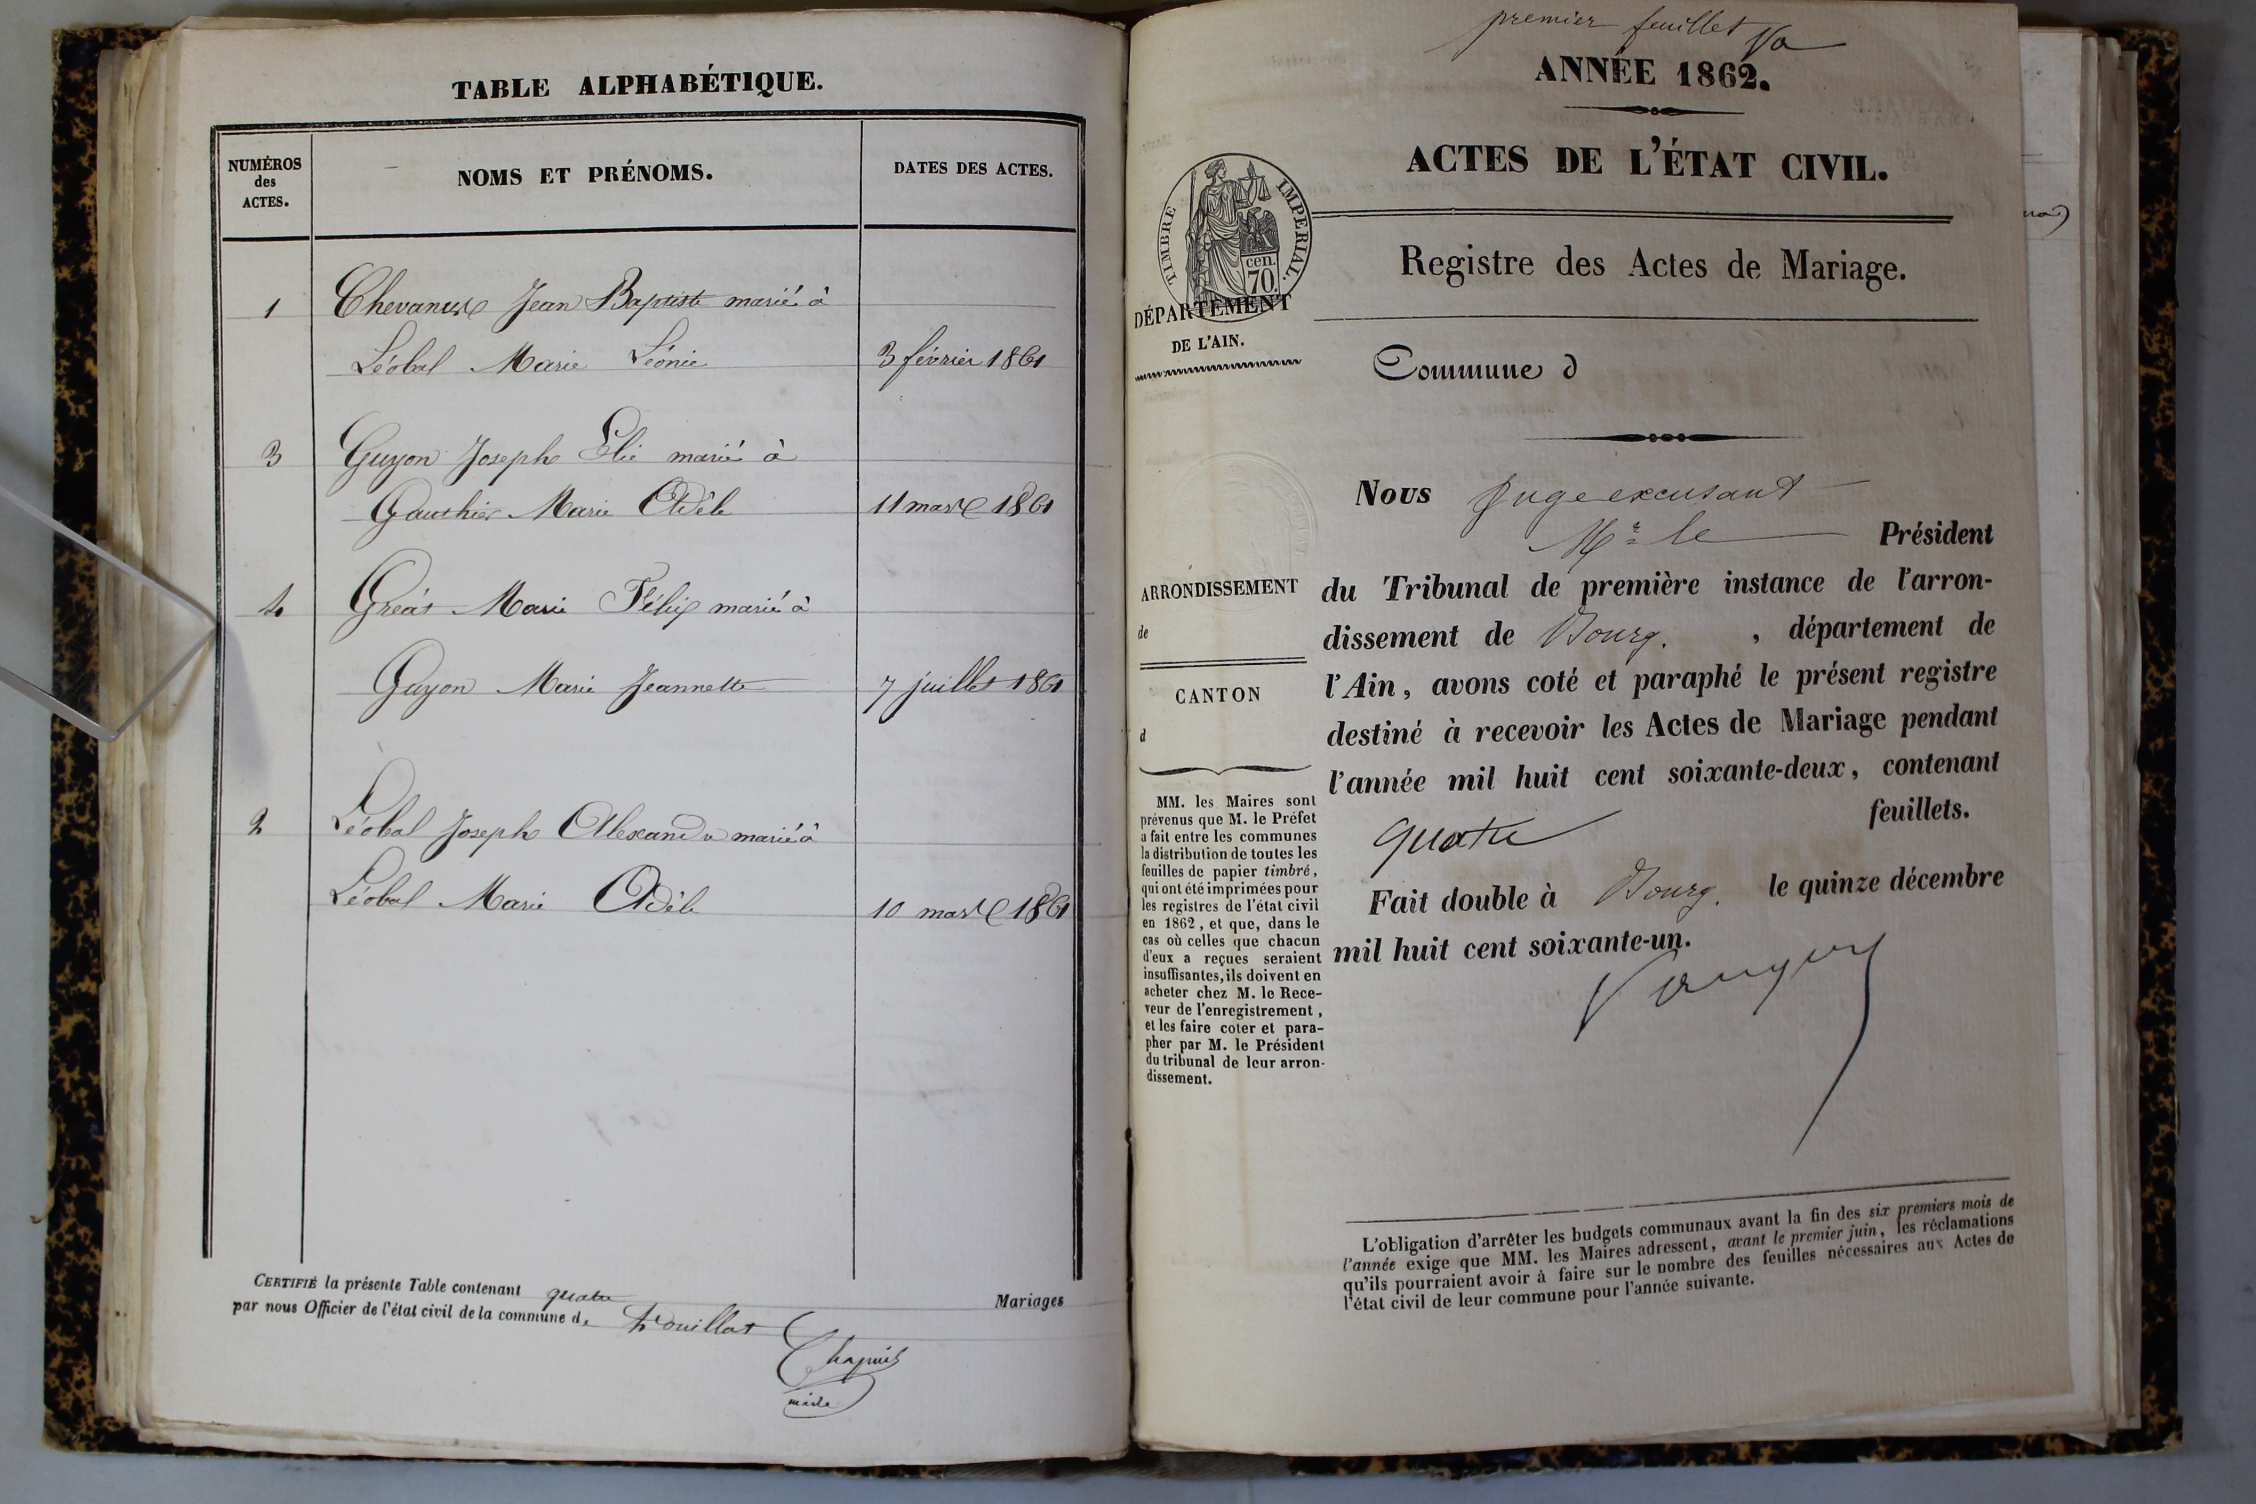 TABLE ALPHABÉTIQUE.
NUMÉROS
des
ACTES.
NOMS ET PRÉNOMS.
DATES DES ACTES.
1 Jean Baptiste marié à
Léobal Marie Léonie 3 février 1861
3 Guyon Joseph Elie marié à
Gauthier Marie Adèle 11 mars 1861
4 Gréat Marie Félix marié à
Guyon Marie Jeannette 7 juillet 1861
2 Léobal Joseph Alexandre marié à
Léobal Marie Adèle 10 mars 1861
CERTIFIÉ la présente Table contenant quatre Mariages
par nous Officier de l'état civil de la commune de
Chapuis
maire
premier feuillet
ANNÉE 1862.
ACTES DE L'ÉTAT CIVIL.
TIMBRE IMPERIAL.
cen.
70.
Registre des Actes de Mariage.
DÉPARTEMENT
DE L'AIN.
Commune d
Nous Juge excusant
Mr le Président
du Tribunal de première instance de l'arron-
dissement de Bourg. , département de
l'Ain, avons coté et paraphé le présent registre
destiné à recevoir les Actes de Mariage pendant
l'année mil huit cent soixante-deux, contenant
quatre feuillets.
Fait double à Bourg. le quinze décembre
mil huit cent soixante-un.
ARRONDISSEMENT
de
CANTON
d
MM. les Maires sont
prévenus que M. le Préfet
a fait entre les communes
la distribution de toutes les
feuilles de papier timbré,
qui ont été imprimées pour
les registres de l'état civil
en 1862, et que, dans le
cas où celles que chacun
d'eux a reçues seraient
insuffisantes, ils doivent en
acheter chez M. le Rece-
veur de l'enregistrement,
et les faire coter et para-
pher par M. le Président
du tribunal de leur arron-
dissement.
L'obligation d'arrêter les budgets communaux avant la fin des six premiers mois de
l'année exige que MM. les Maires adressent, avant le premier juin, les réclamations
qu'ils pourraient avoir à faire sur le nombre des feuilles nécessaires aux Actes de
l'état civil de leur commune pour l'année suivante.